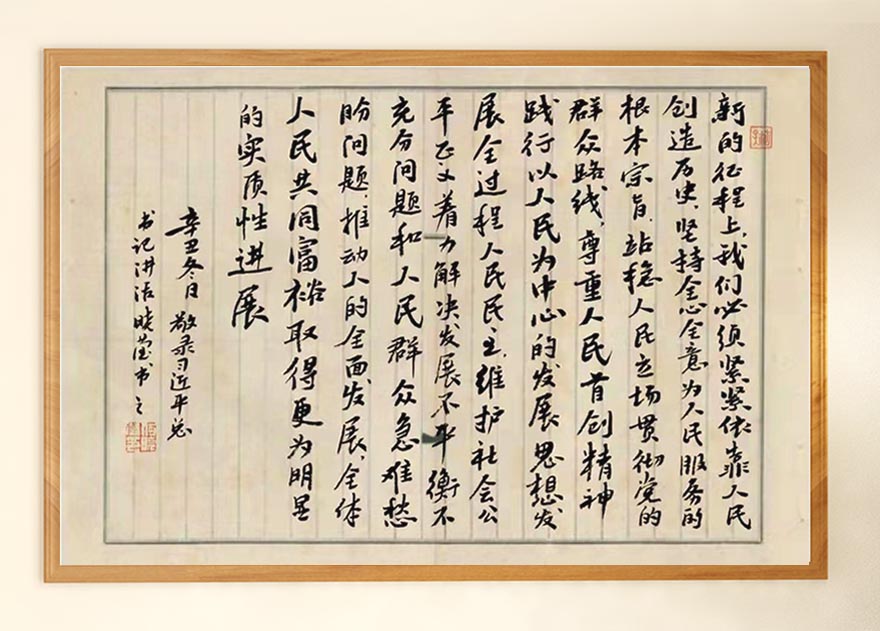 新的征程上,我们必须紧紧依靠人民
创造历史,坚持全心全意为人民服务的
根本宗旨,站稳人民立场贯彻党的
群众路线,尊重人民首创精神
践行以人民为中心的发展思想发
展全过程人民民主,维护社会公
平正义着力解决发展不平衡不
充分问题和人民群众急难愁
盼问题,推动人的全面发展,全体
人民共同富裕取得更为明显
的实质性进展
辛丑冬日敬录习近平总
书记讲话晓莹书之